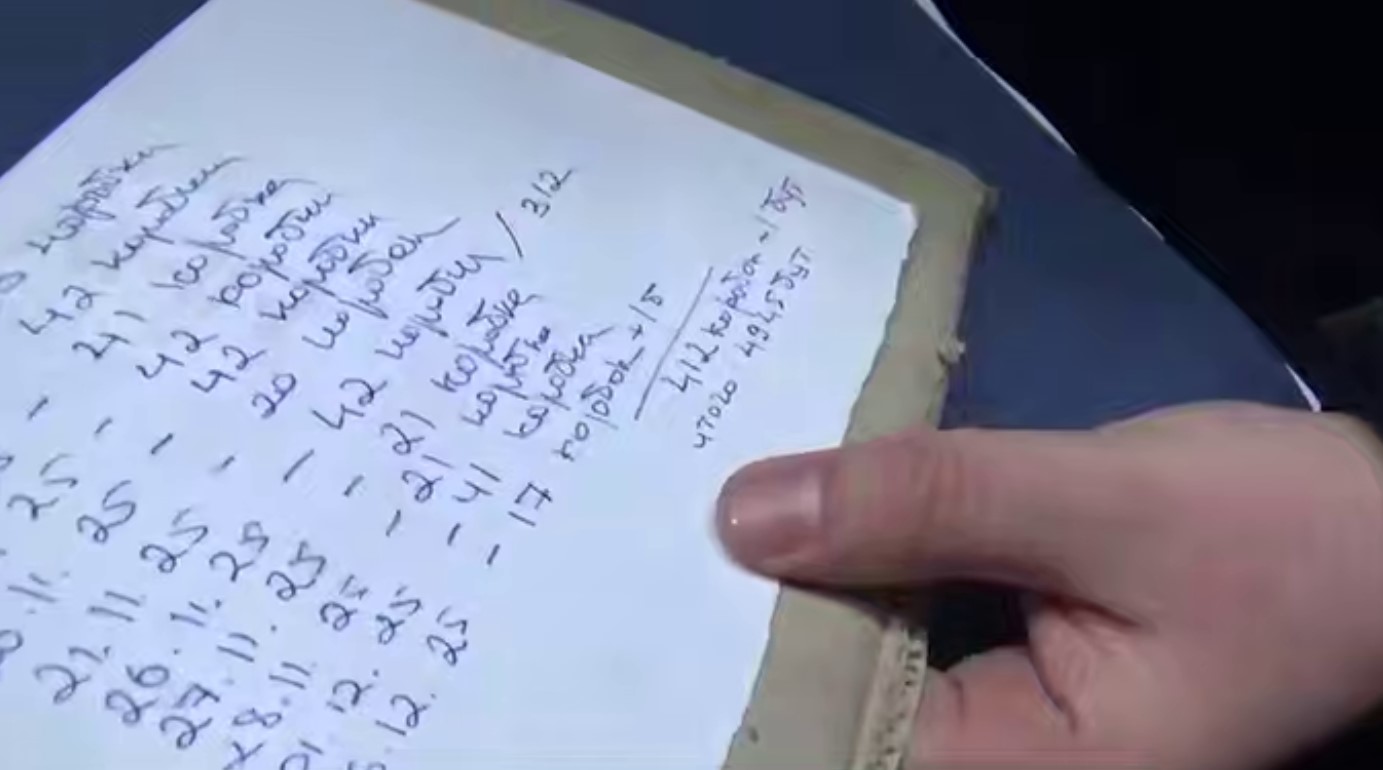 коробки
42 коробки
41 коробка
42 коробки
42 коробки
20 коробок
42 коробки / 312
21 коробка
21 коробка
41 коробка
17 коробок + 1б
412 коробок ~ 1 бут
итого: 4945 бут
25 -
25 -
25 -
25 -
25 -
25 -
25 -
25 -
11.
21. 11.
26. 11.
27. 11.
28. 11.
01. 12.
12.